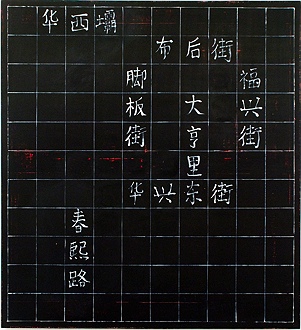 华西壩
布后街
脚板街
福兴街
大亨里
华兴东街
春熙路